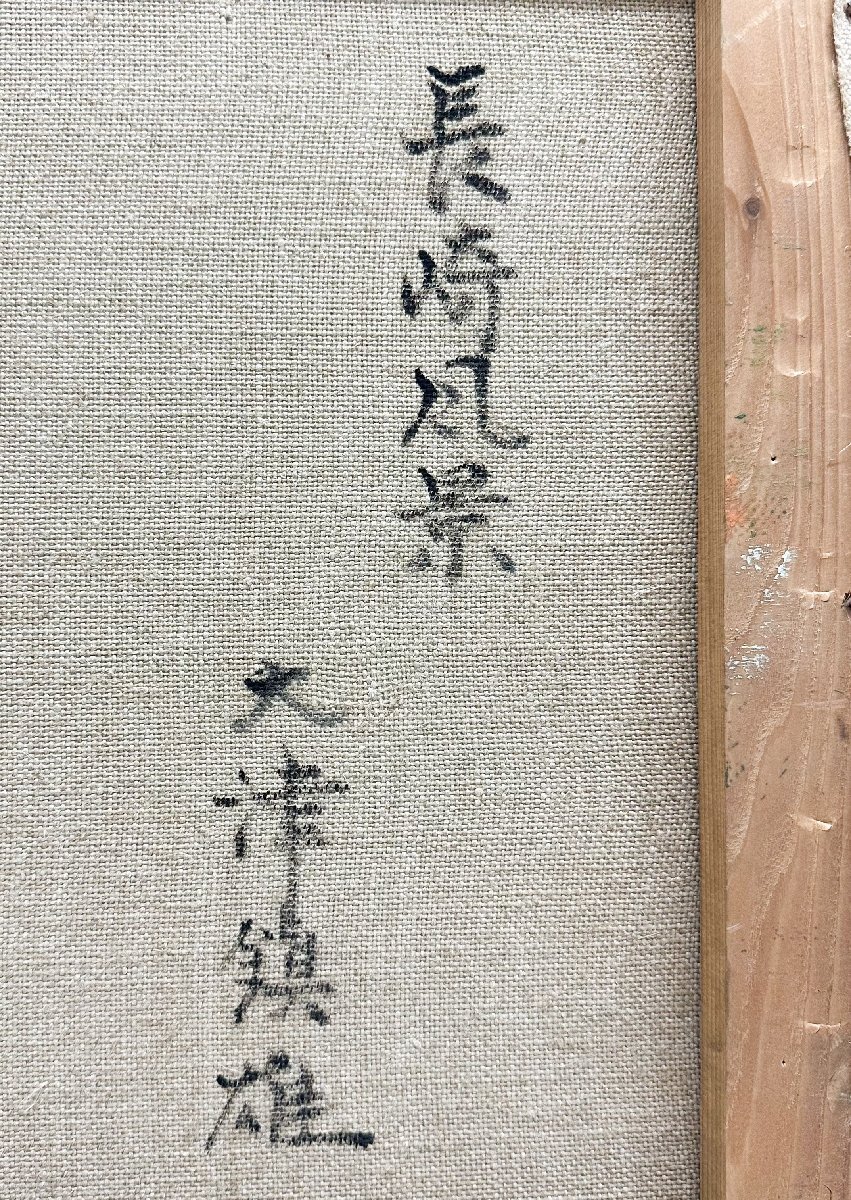 長崎風景
大津鎮雄